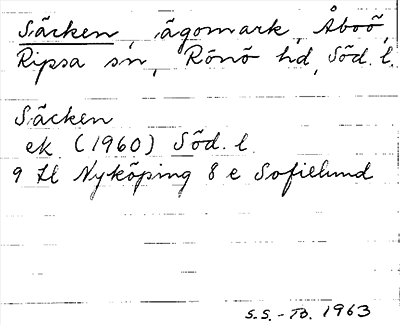 Säcken, ägomark, Åboö,
Ripsa sn, Rönö hd, Söd. l.
Säcken
ek (1960) Söd. l.
9 Hl Nyköping 8 e Sofielund
S.S.-TB. 1963